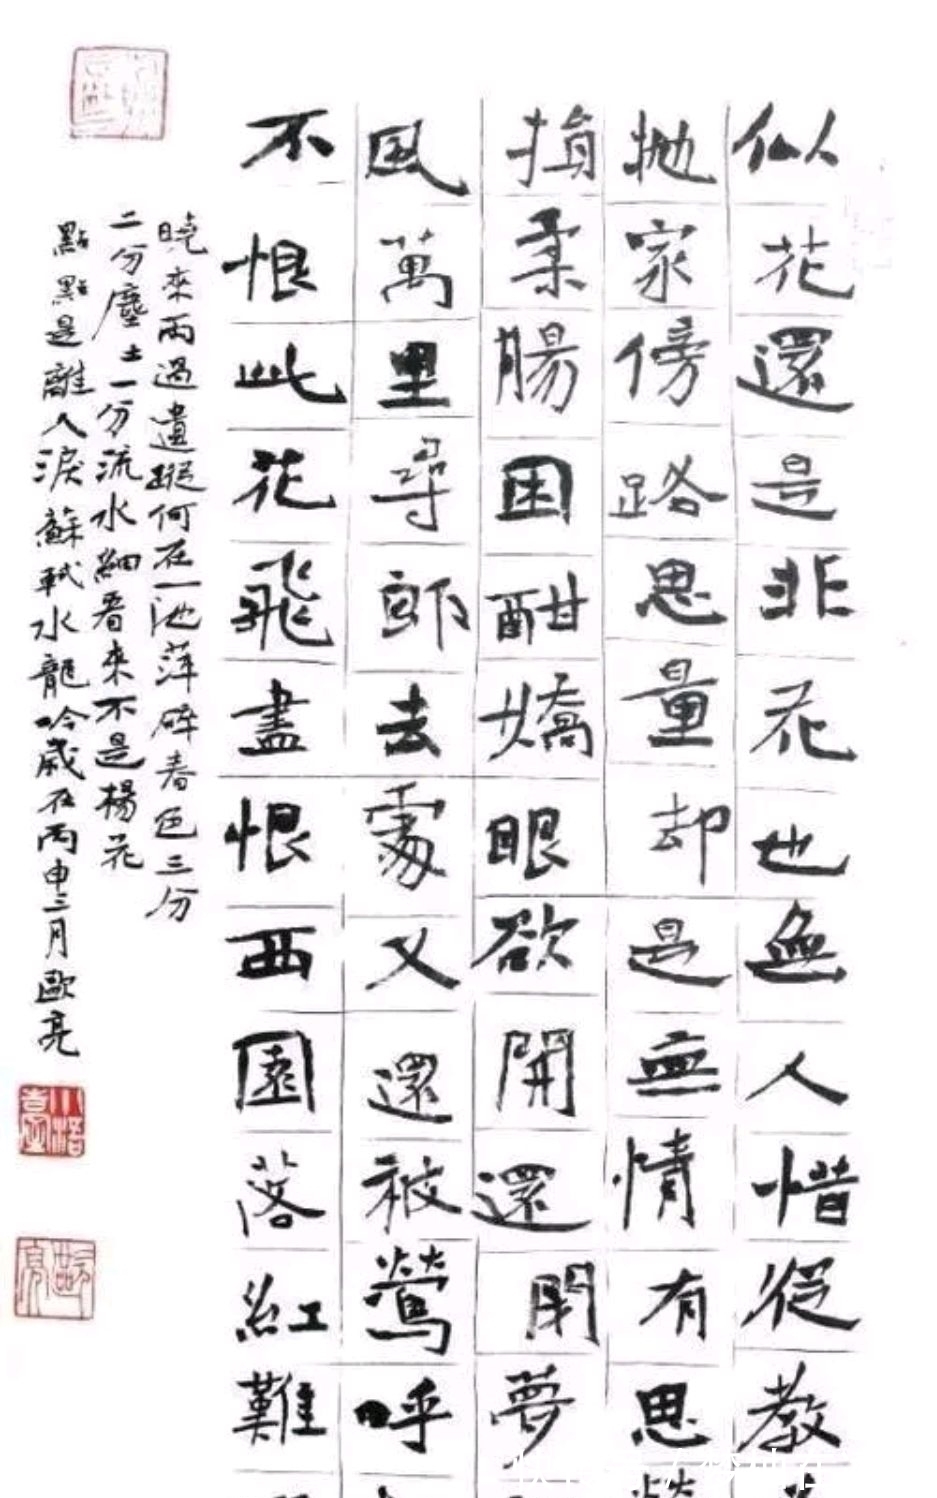 似花還是非花也無人惜從教
抛家傍路思量却是無情有思
損柔腸困酣嬌眼欲開還閉夢
風萬里尋郎去處又還被鶯呼
不恨此花飛盡恨西園落紅難
曉來雨過遺蹤何在一池萍碎春色三分
二分塵土一分流水細看來不是楊花
點點是離人淚蘇軾水龍吟歲在丙申三月歐亮